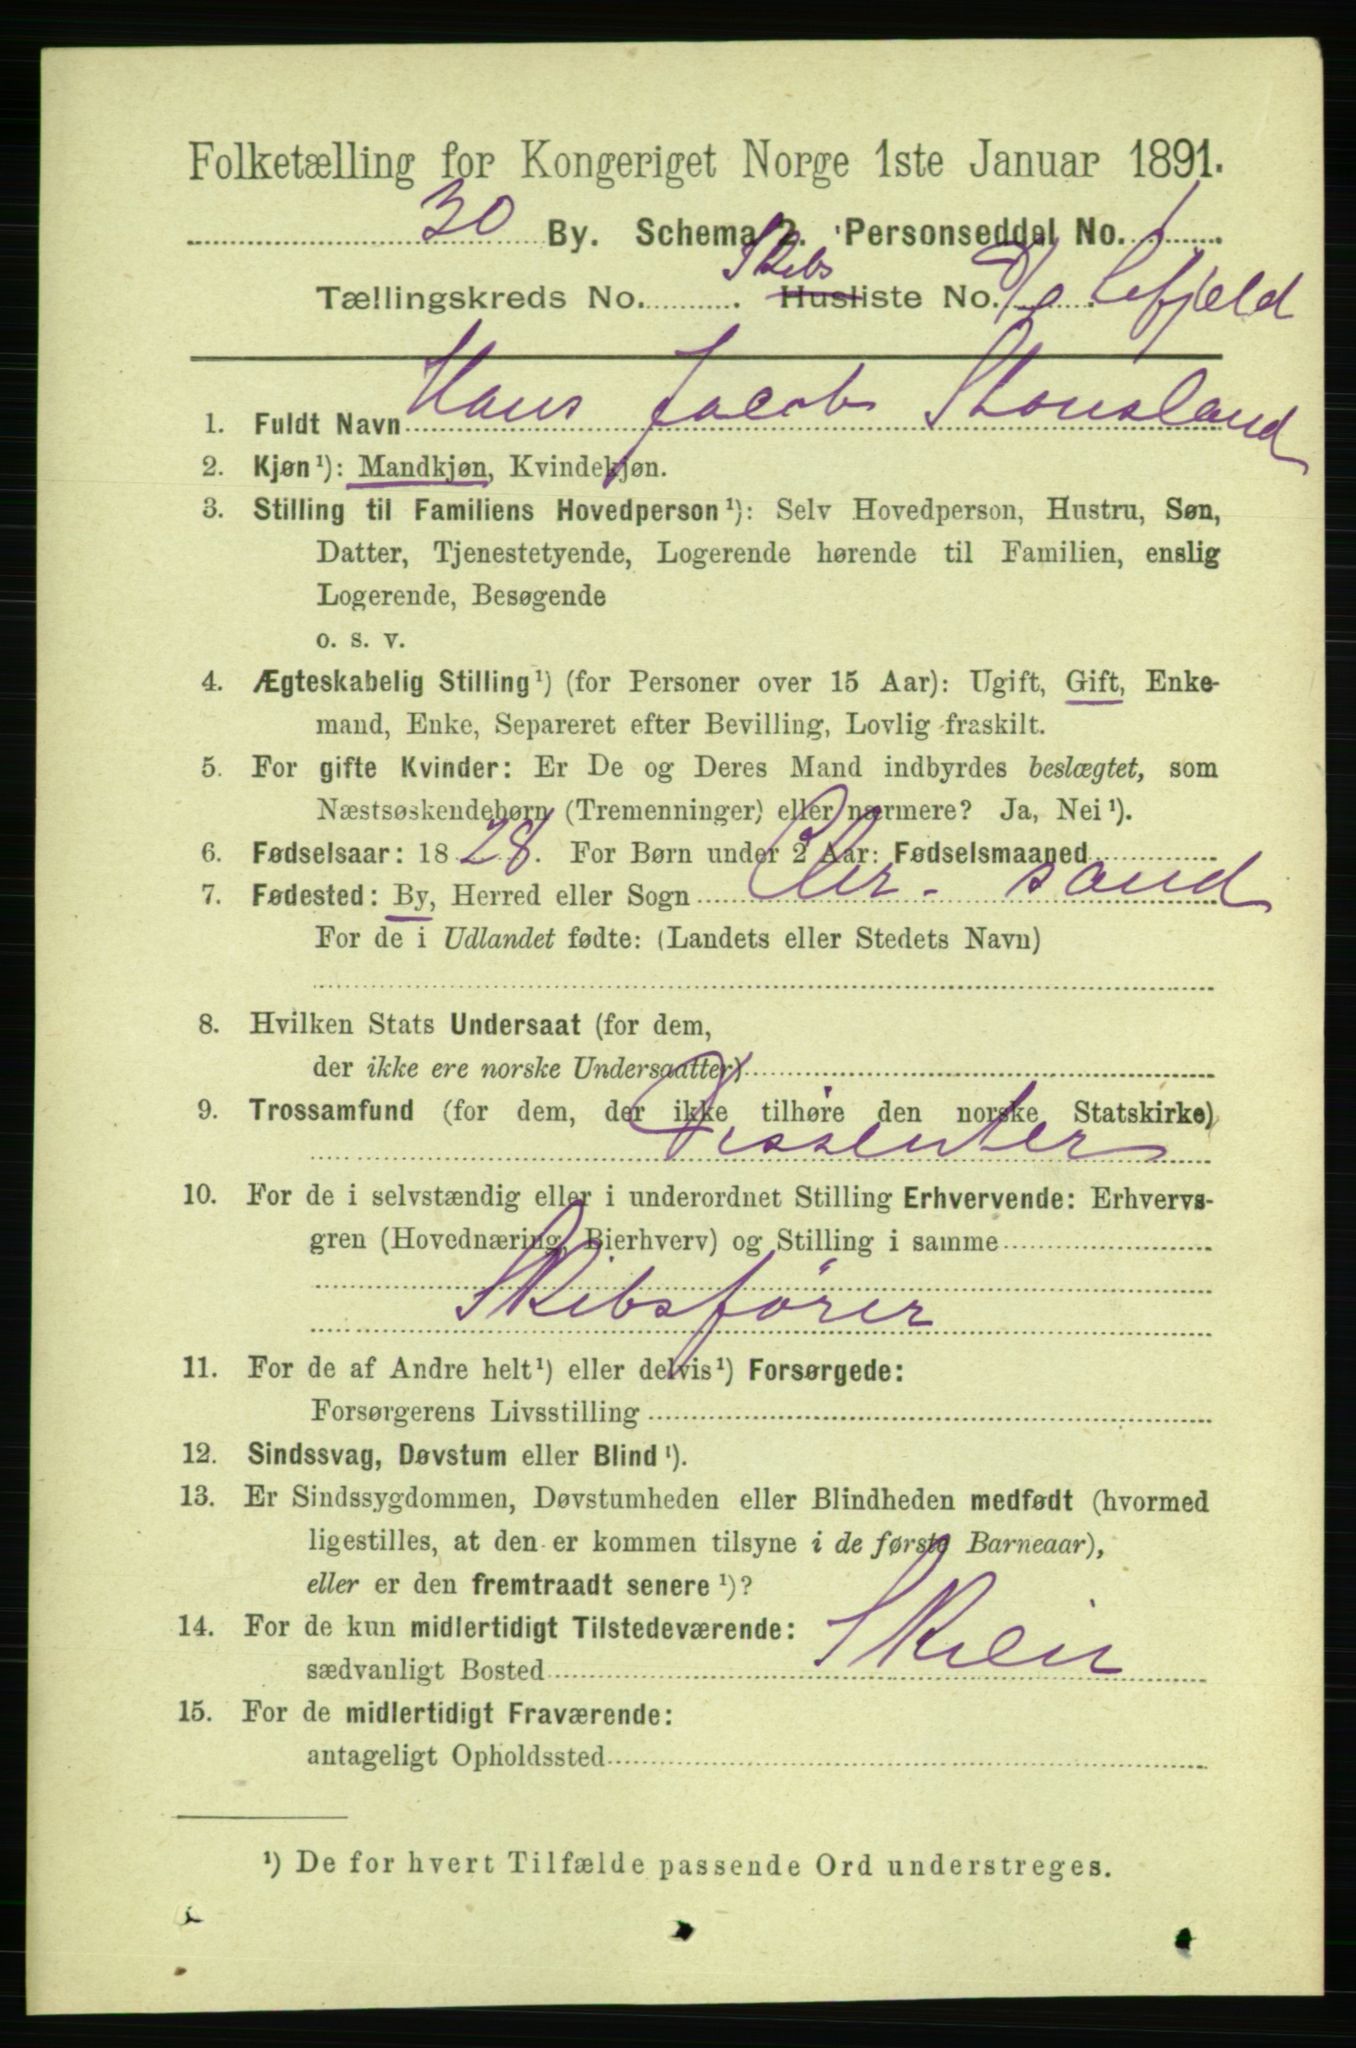 Folketælling for Kongeriget Norge 1ste Januar 1891.
30 By. Schema 2. Personseddel No. 1
Skibs
Tællingskreds No. . Husliste No. D/a Lifjeld
1. Fuldt Navn Hans Jacob Stousland
2. Kjøn ¹): Mandkjøn, Kvindekjøn.
3. Stilling til Familiens Hovedperson ¹): Selv Hovedperson, Hustru, Søn,
Datter, Tjenestetyende, Logerende hørende til Familien, enslig
Logerende, Besøgende
o. s. v.
4. Ægteskabelig Stilling ¹) (for Personer over 15 Aar): Ugift, Gift, Enke-
mand, Enke, Separeret efter Bevilling, Lovlig fraskilt.
5. For gifte Kvinder: Er De og Deres Mand indbyrdes beslægtet, som
Næstsøskendebørn (Tremenninger) eller nærmere? Ja, Nei ¹).
6. Fødselsaar: 1828. For Børn under 2 Aar: Fødselsmaaned
7. Fødested: By, Herred eller Sogn Chr.sand
For de i Udlandet fødte: (Landets eller Stedets Navn)
8. Hvilken Stats Undersaat (for dem,
der ikke ere norske Undersaatter)
9. Trossamfund (for dem, der ikke tilhøre den norske Statskirke)
Dissenter
10. For de i selvstændig eller i underordnet Stilling Erhvervende: Erhvervs-
gren (Hovednæring, Bierhverv) og Stilling i samme
Skibsfører
11. For de af Andre helt ¹) eller delvis ¹) Forsørgede:
Forsørgerens Livsstilling
12. Sindssvag, Døvstum eller Blind ¹).
13. Er Sindssygdommen, Døvstumheden eller Blindheden medfødt (hvormed
ligestilles, at den er kommen tilsyne i de første Barneaar),
eller er den fremtraadt senere ¹)?
14. For de kun midlertidigt Tilstedeværende:
sædvanligt Bosted Skien
15. For de midlertidigt Fraværende:
antageligt Opholdssted
¹) De for hvert Tilfælde passende Ord understreges.